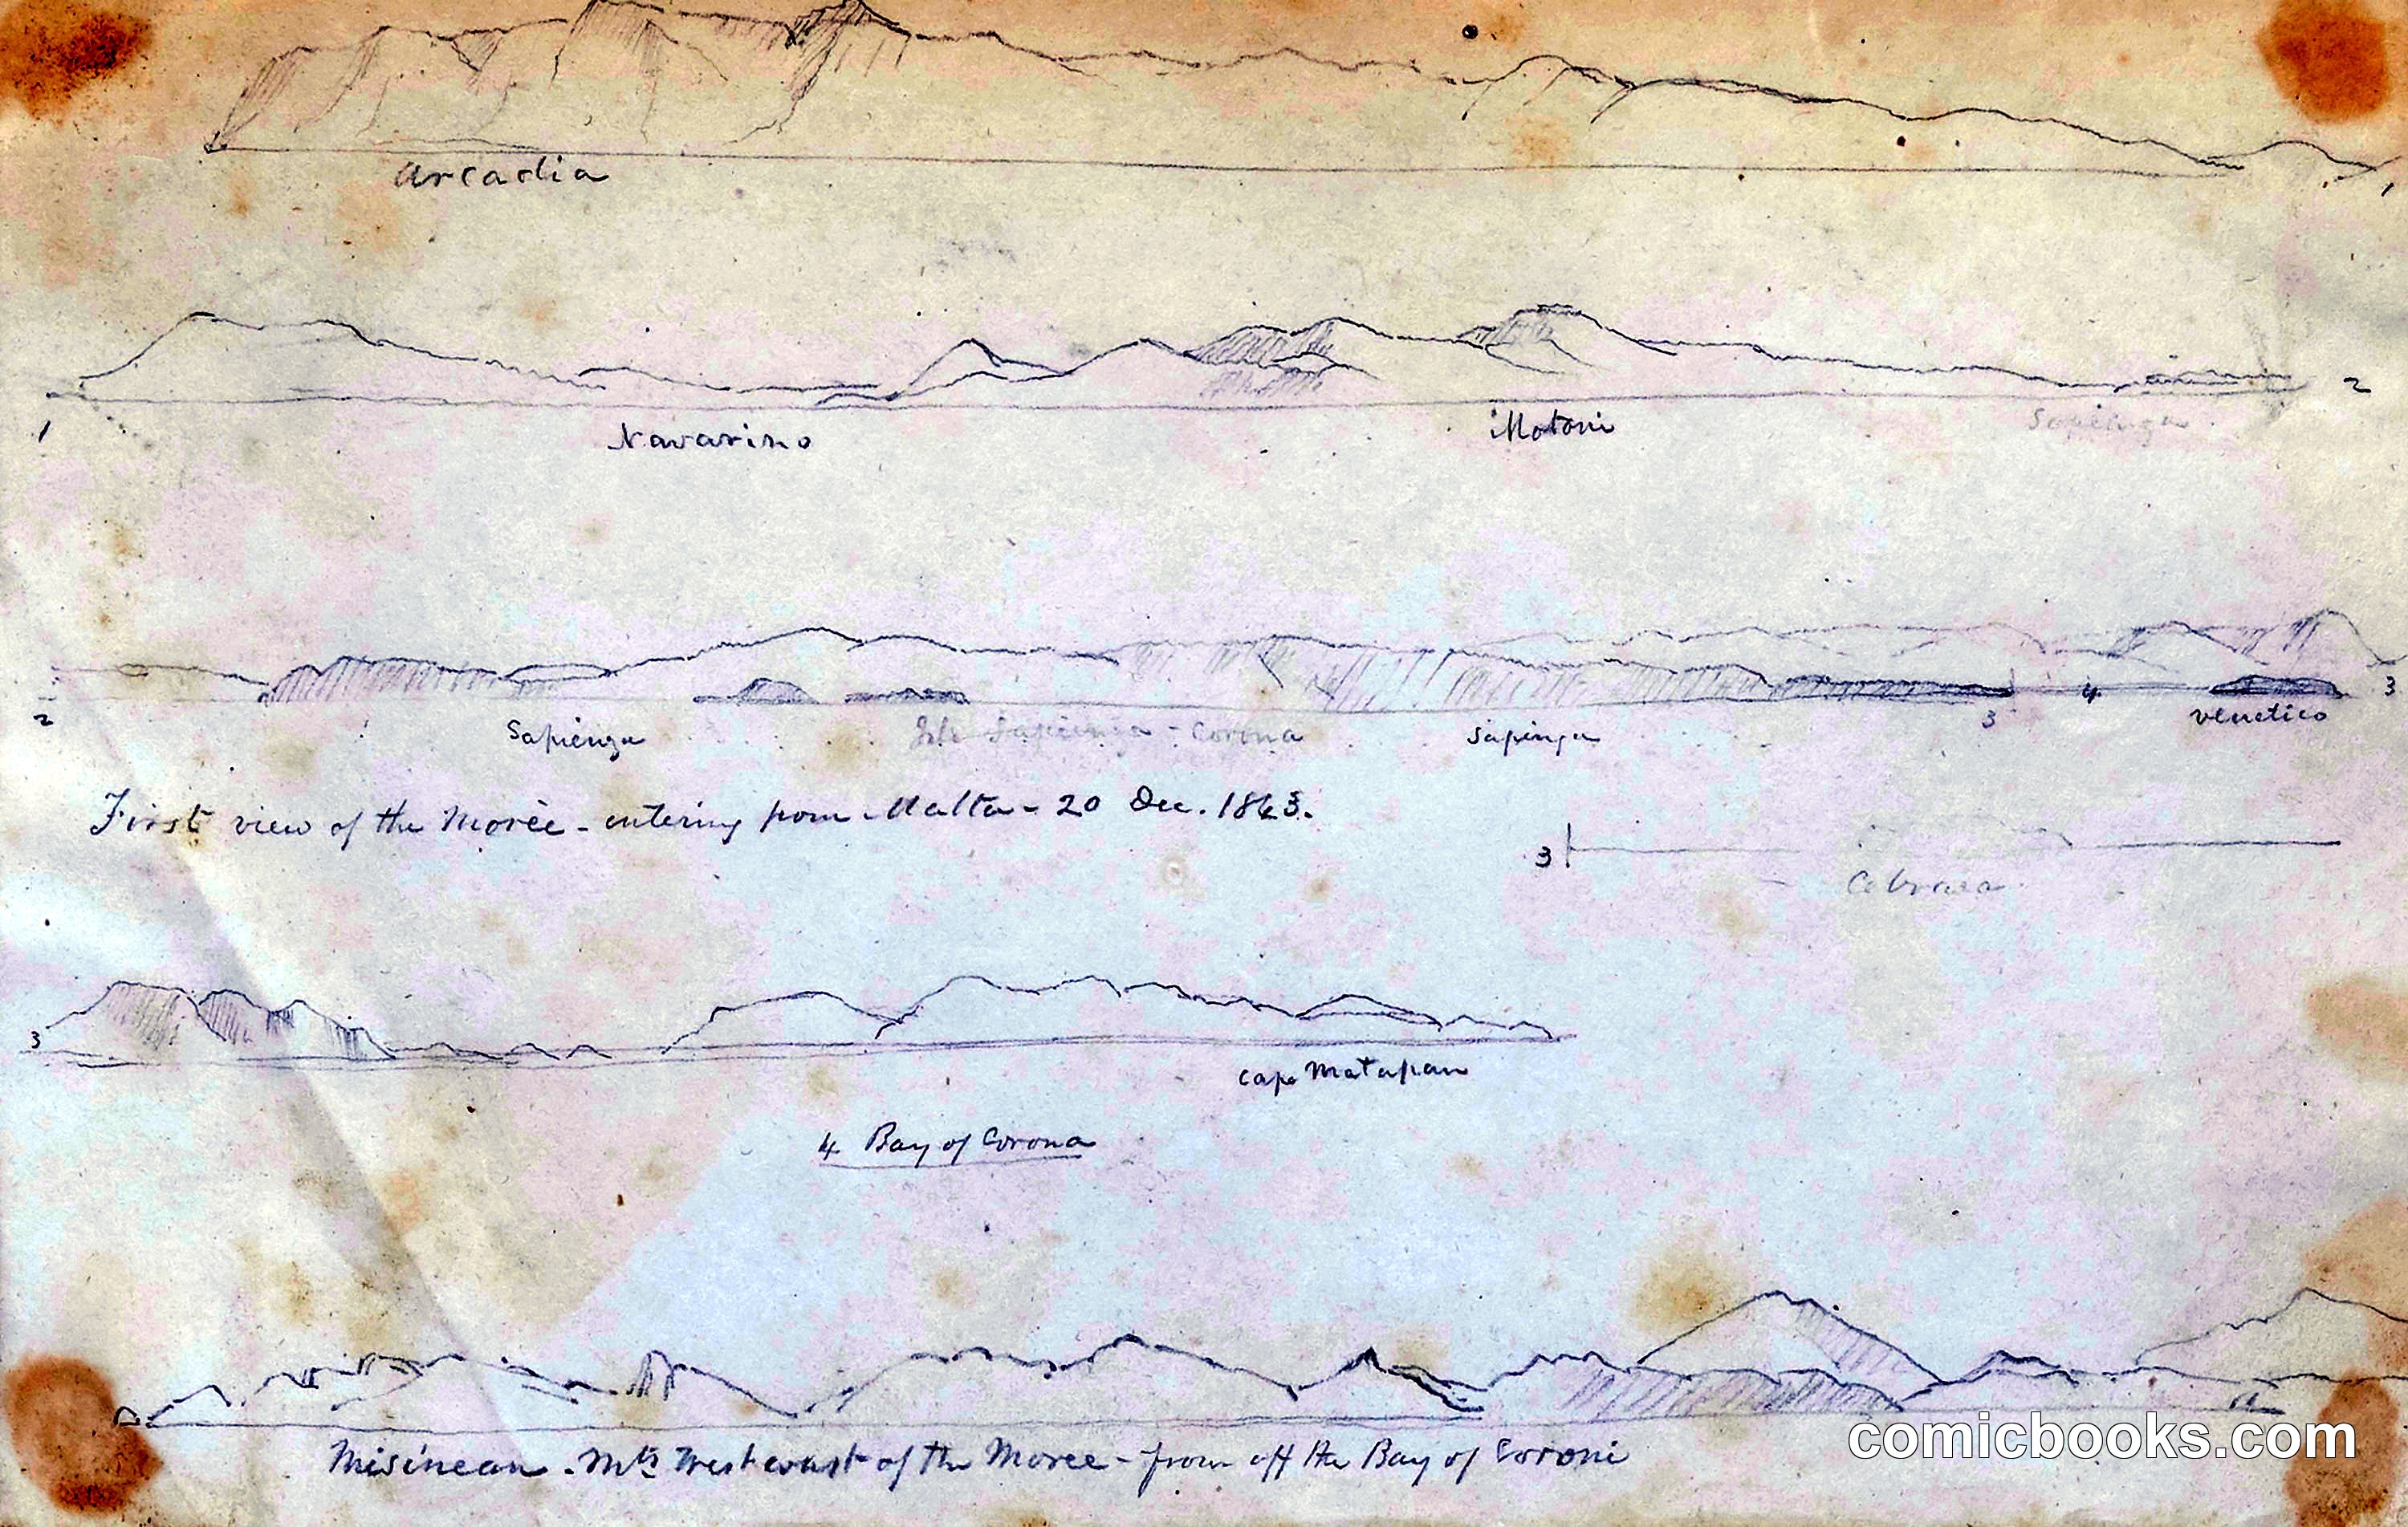 Arcadia
1
1 Navarino Motoni Sapienza 2
2 Sapienza Sapienza - Corona Sapienza 3 4 Venetico 3
First view of the Morèe - entering from Malta - 20 Dec. 1863.
3
3
Cape Matapan
4 Bay of Corona
Misinean - Mts West coast of the Moree - from off the Bay of Coroni
comicbooks.com